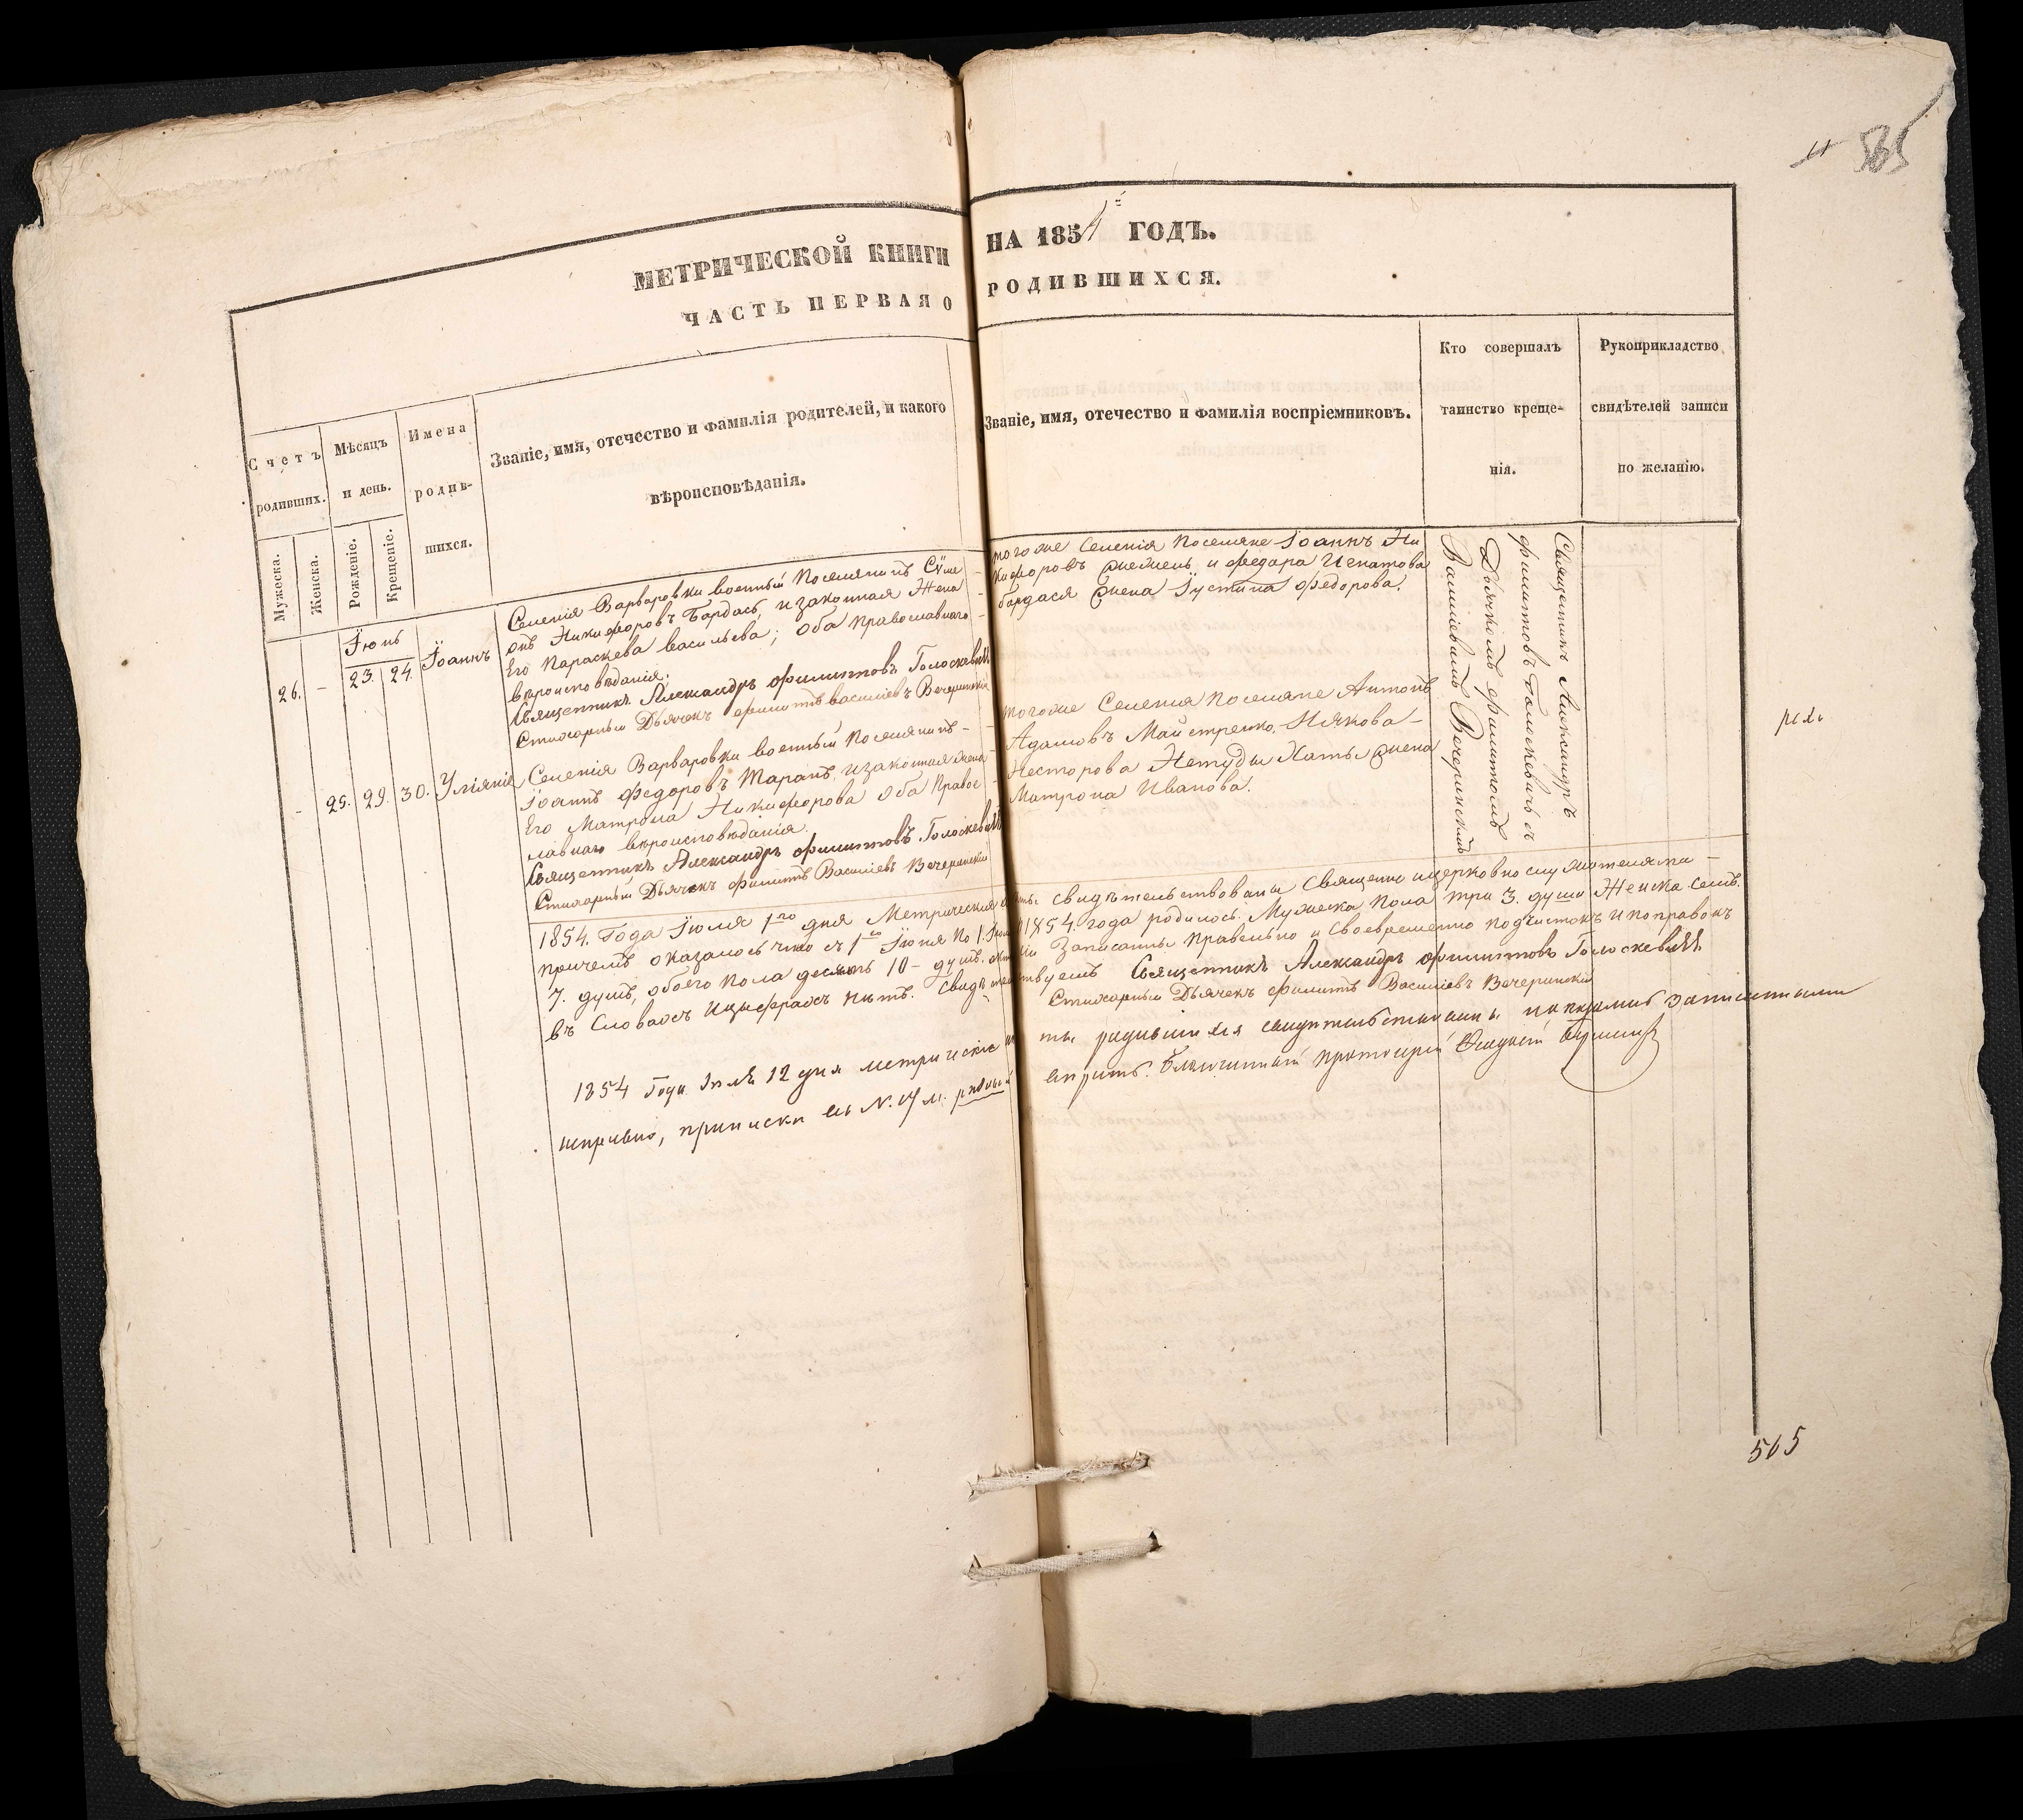 11 565
МЕТРИЧЕСКОЙ КНИГИ НА 1854 ГОДЪ.
ЧАСТЬ ПЕРВАЯ О РОДИВШИХСЯ.
Счетъ родившихъ.
Мужеска.
Женска.
Мѣсяцъ и день.
Рожденіе.
Крещеніе.
Имена родив-
шихся.
Званіе, имя, отечество и фамилія родителей, и какого
вѣроисповѣданія.
Званіе, имя, отечество и фамилія воспріемниковъ.
Кто совершалъ
таинство креще-
нія.
Рукоприкладство
свидѣтелей записи
по желанію.
Іюнь
26. - 23. 24. Іоаннъ
Селенія Варваровки военный поселянинъ Сѵме
онъ Никифоровъ Бардасъ, и законная Жена
Его Параскева васильева; Оба православнаго
вѣроисповѣданія.
Священникъ Александръ Филиповъ Голоскевичъ
Стихарный Дьячекъ Филипъ Василіевъ Вечеринскій
тогоже Селенія Поселяне Іоаннъ Ни
кифоровъ и федора Игнатова
бардася жена Іустина Федорова.
Священникъ Александръ
Филиповъ Голоскевичь съ
Дьячкомъ Филипомъ
Василіевымъ Вечеринскимъ
- 25. 29. 30. Уліянія
Селенія Варваровки военный Поселянинъ
Іоаннъ Федоровъ Таранъ, и законная жена
Его Матрона Никифорова Оба Правос
лавнаго вѣроисповѣданія.
Священникъ Александръ Филиповъ Голоскевичъ
Стихарный Дьячекъ Филипъ Василіевъ Вечеринскій
тогоже Селенія Поселяне Антонъ
Адамовъ Майстренко, Иякова
Несторова Нетуды Хаты жена
Матрона Иванова.
1854. Года Іюля 1го дня Метрическія свидѣтельствованы Священно ицерковно служителями
причемъ оказалось что съ 1го Іюня по 1. Іюля 1854. года родилось. Мужеска пола три 3. души Женска семь.
7. душъ, обоего пола десять 10 - душъ. Записаны правельно и своевременно подчистокъ и поправокъ
въ Словахъ ицыфрахъ нѣтъ. Свидѣтельствуемъ Священникъ Александръ Филиповъ Голоскевичъ
Стихарный Дьячекъ Филипъ Василіевъ Вечеринскій
1854 Года Іюля 12 дня метрическіе родившихся свидѣтельствованы записанными
исправно, Благочинный протоіерей
565